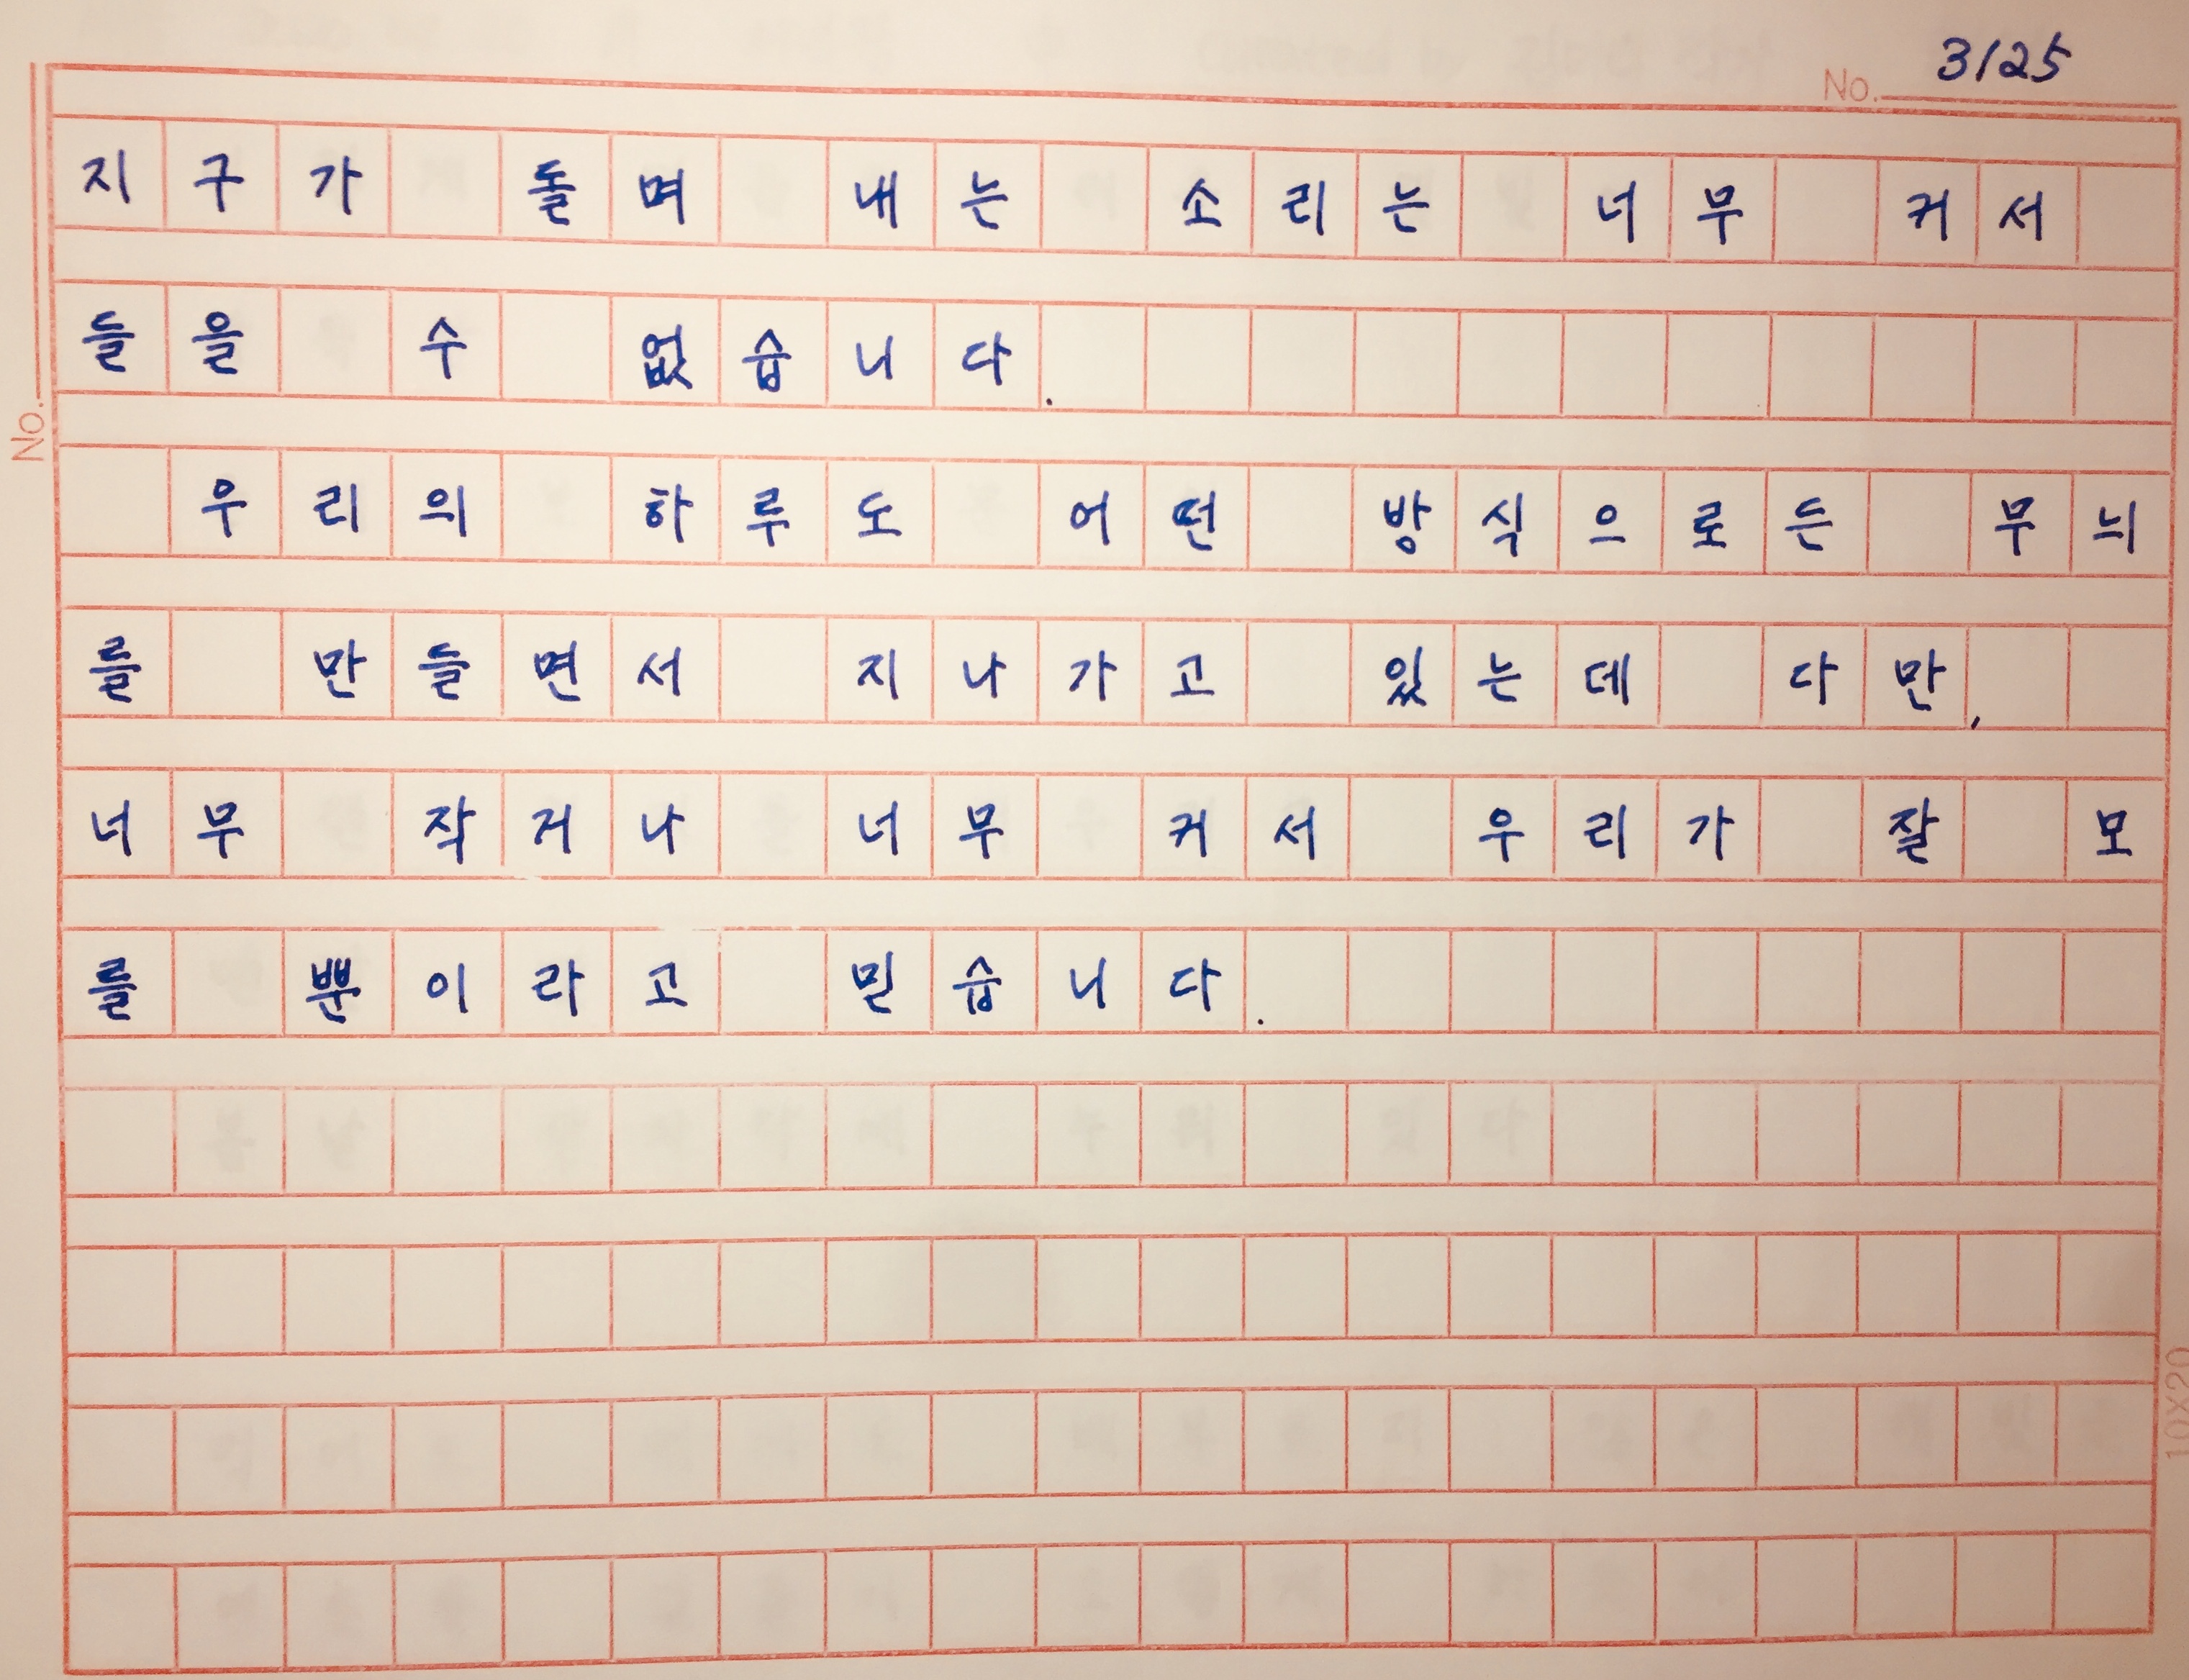 No. 3125
지구가 돌며 내는 소리는 너무 커서
들을 수 없습니다.
우리의 하루도 어떤 방식으로든 무늬
를 만들면서 지나가고 있는데 다만,
너무 작거나 너무 커서 우리가 잘 모
를 뿐이라고 믿습니다.
No.
10X20